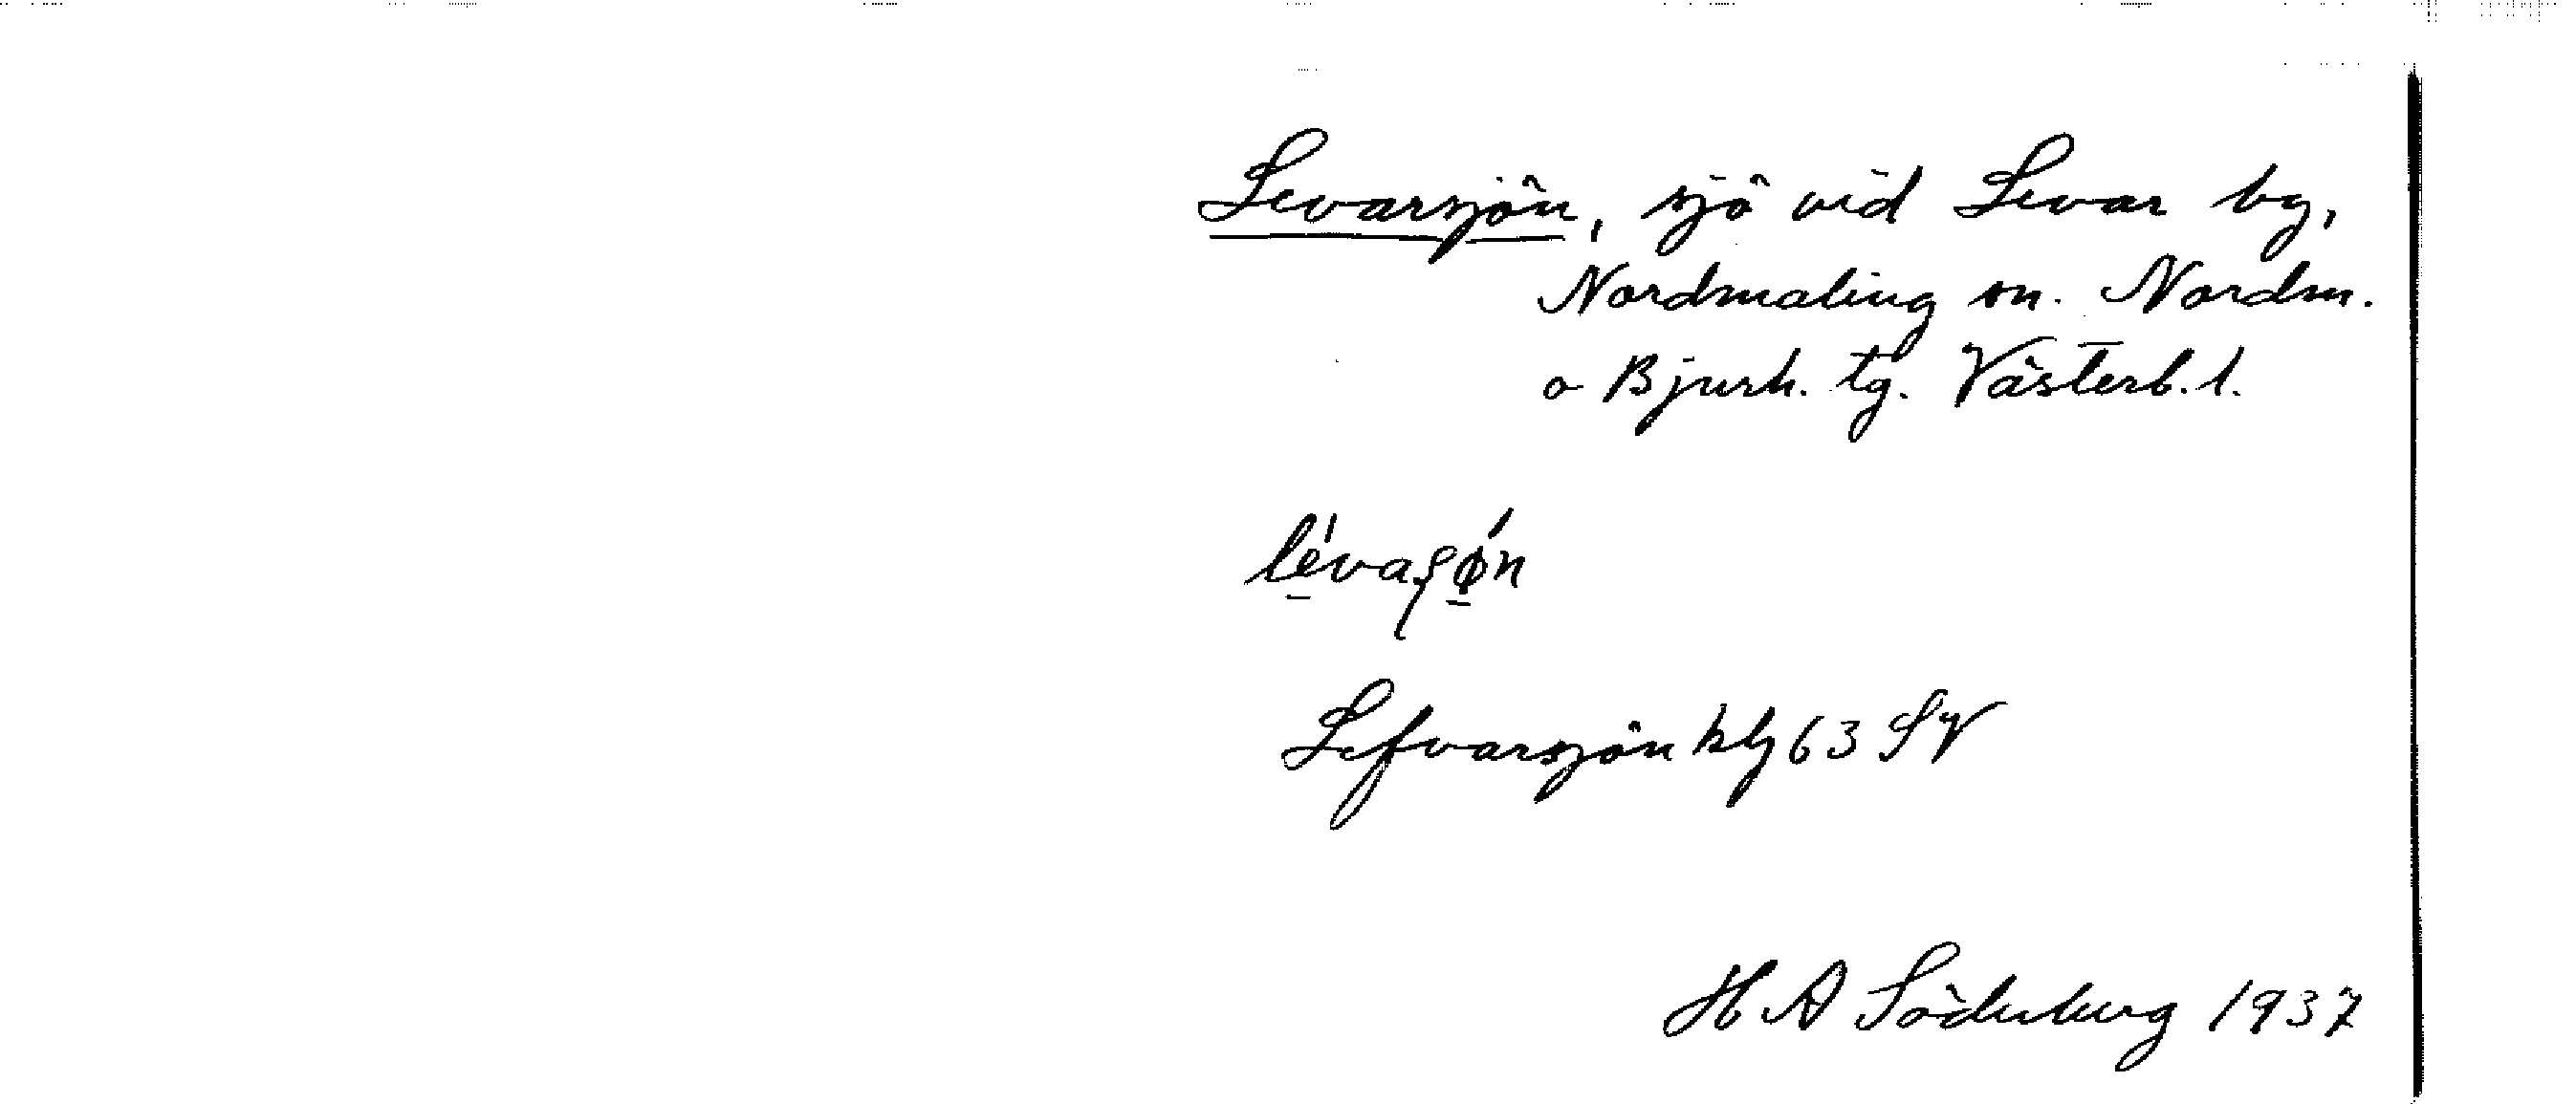 Levarsjön, sjö vid Levar by,
Nordmaling sn. Nordm.
o Bjurh. tg. Västerb. l.
Lefvarsjön kbl 63 SV
H A Söderberg 1937